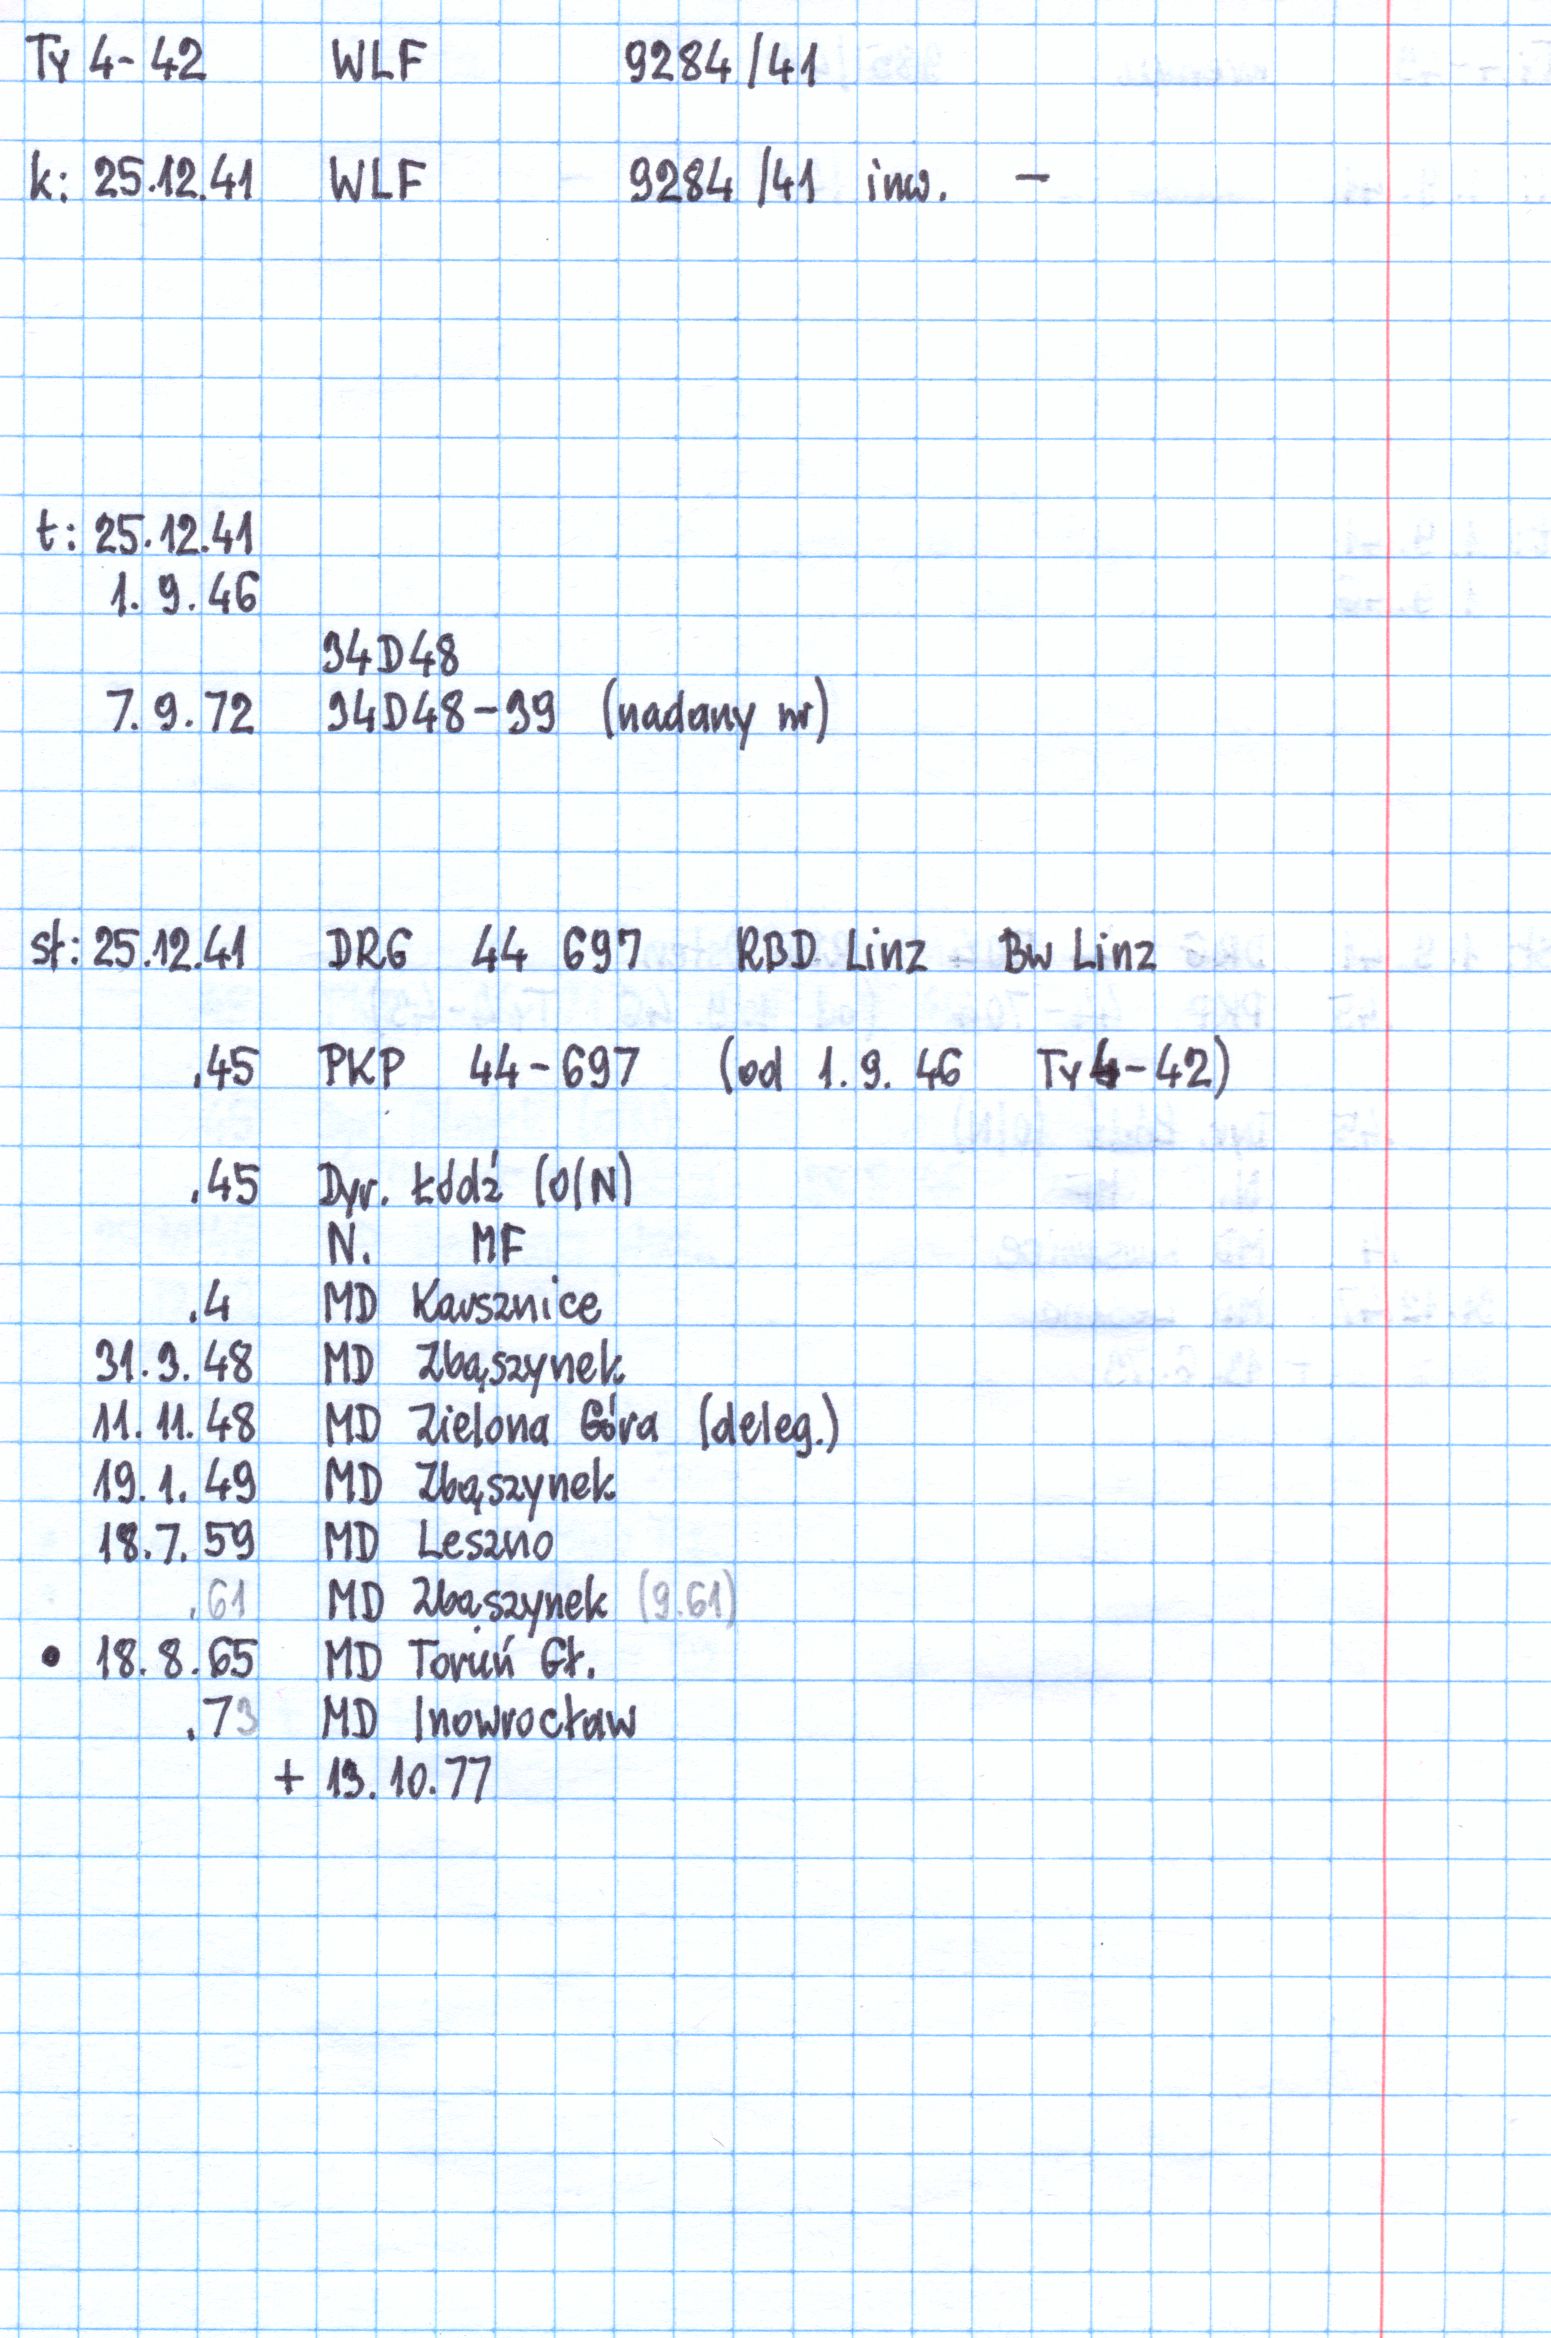 Ty 4-42 WLF 9284/41
k: 25.12.41 WLF 9284/41 inw. -
t: 25.12.41
1.9.46
34D48
7.9.72 34D48-39 (nadany nr)
st: 25.12.41 DRG 44 697 RBD Linz Bw Linz
.45 PKP 44-697 (od 1.9.46 Ty4-42)
.45 Dyr. Łódź (O/N)
N. MF
.4 MD Karsznice
31.3.48 MD Zbąszynek
11.11.48 MD Zielona Góra (deleg.)
19.1.49 MD Zbąszynek
18.7.59 MD Leszno
.61 MD Zbąszynek (9.61)
• 18.8.65 MD Toruń Gł.
.73 MD Inowrocław
+ 13.10.77